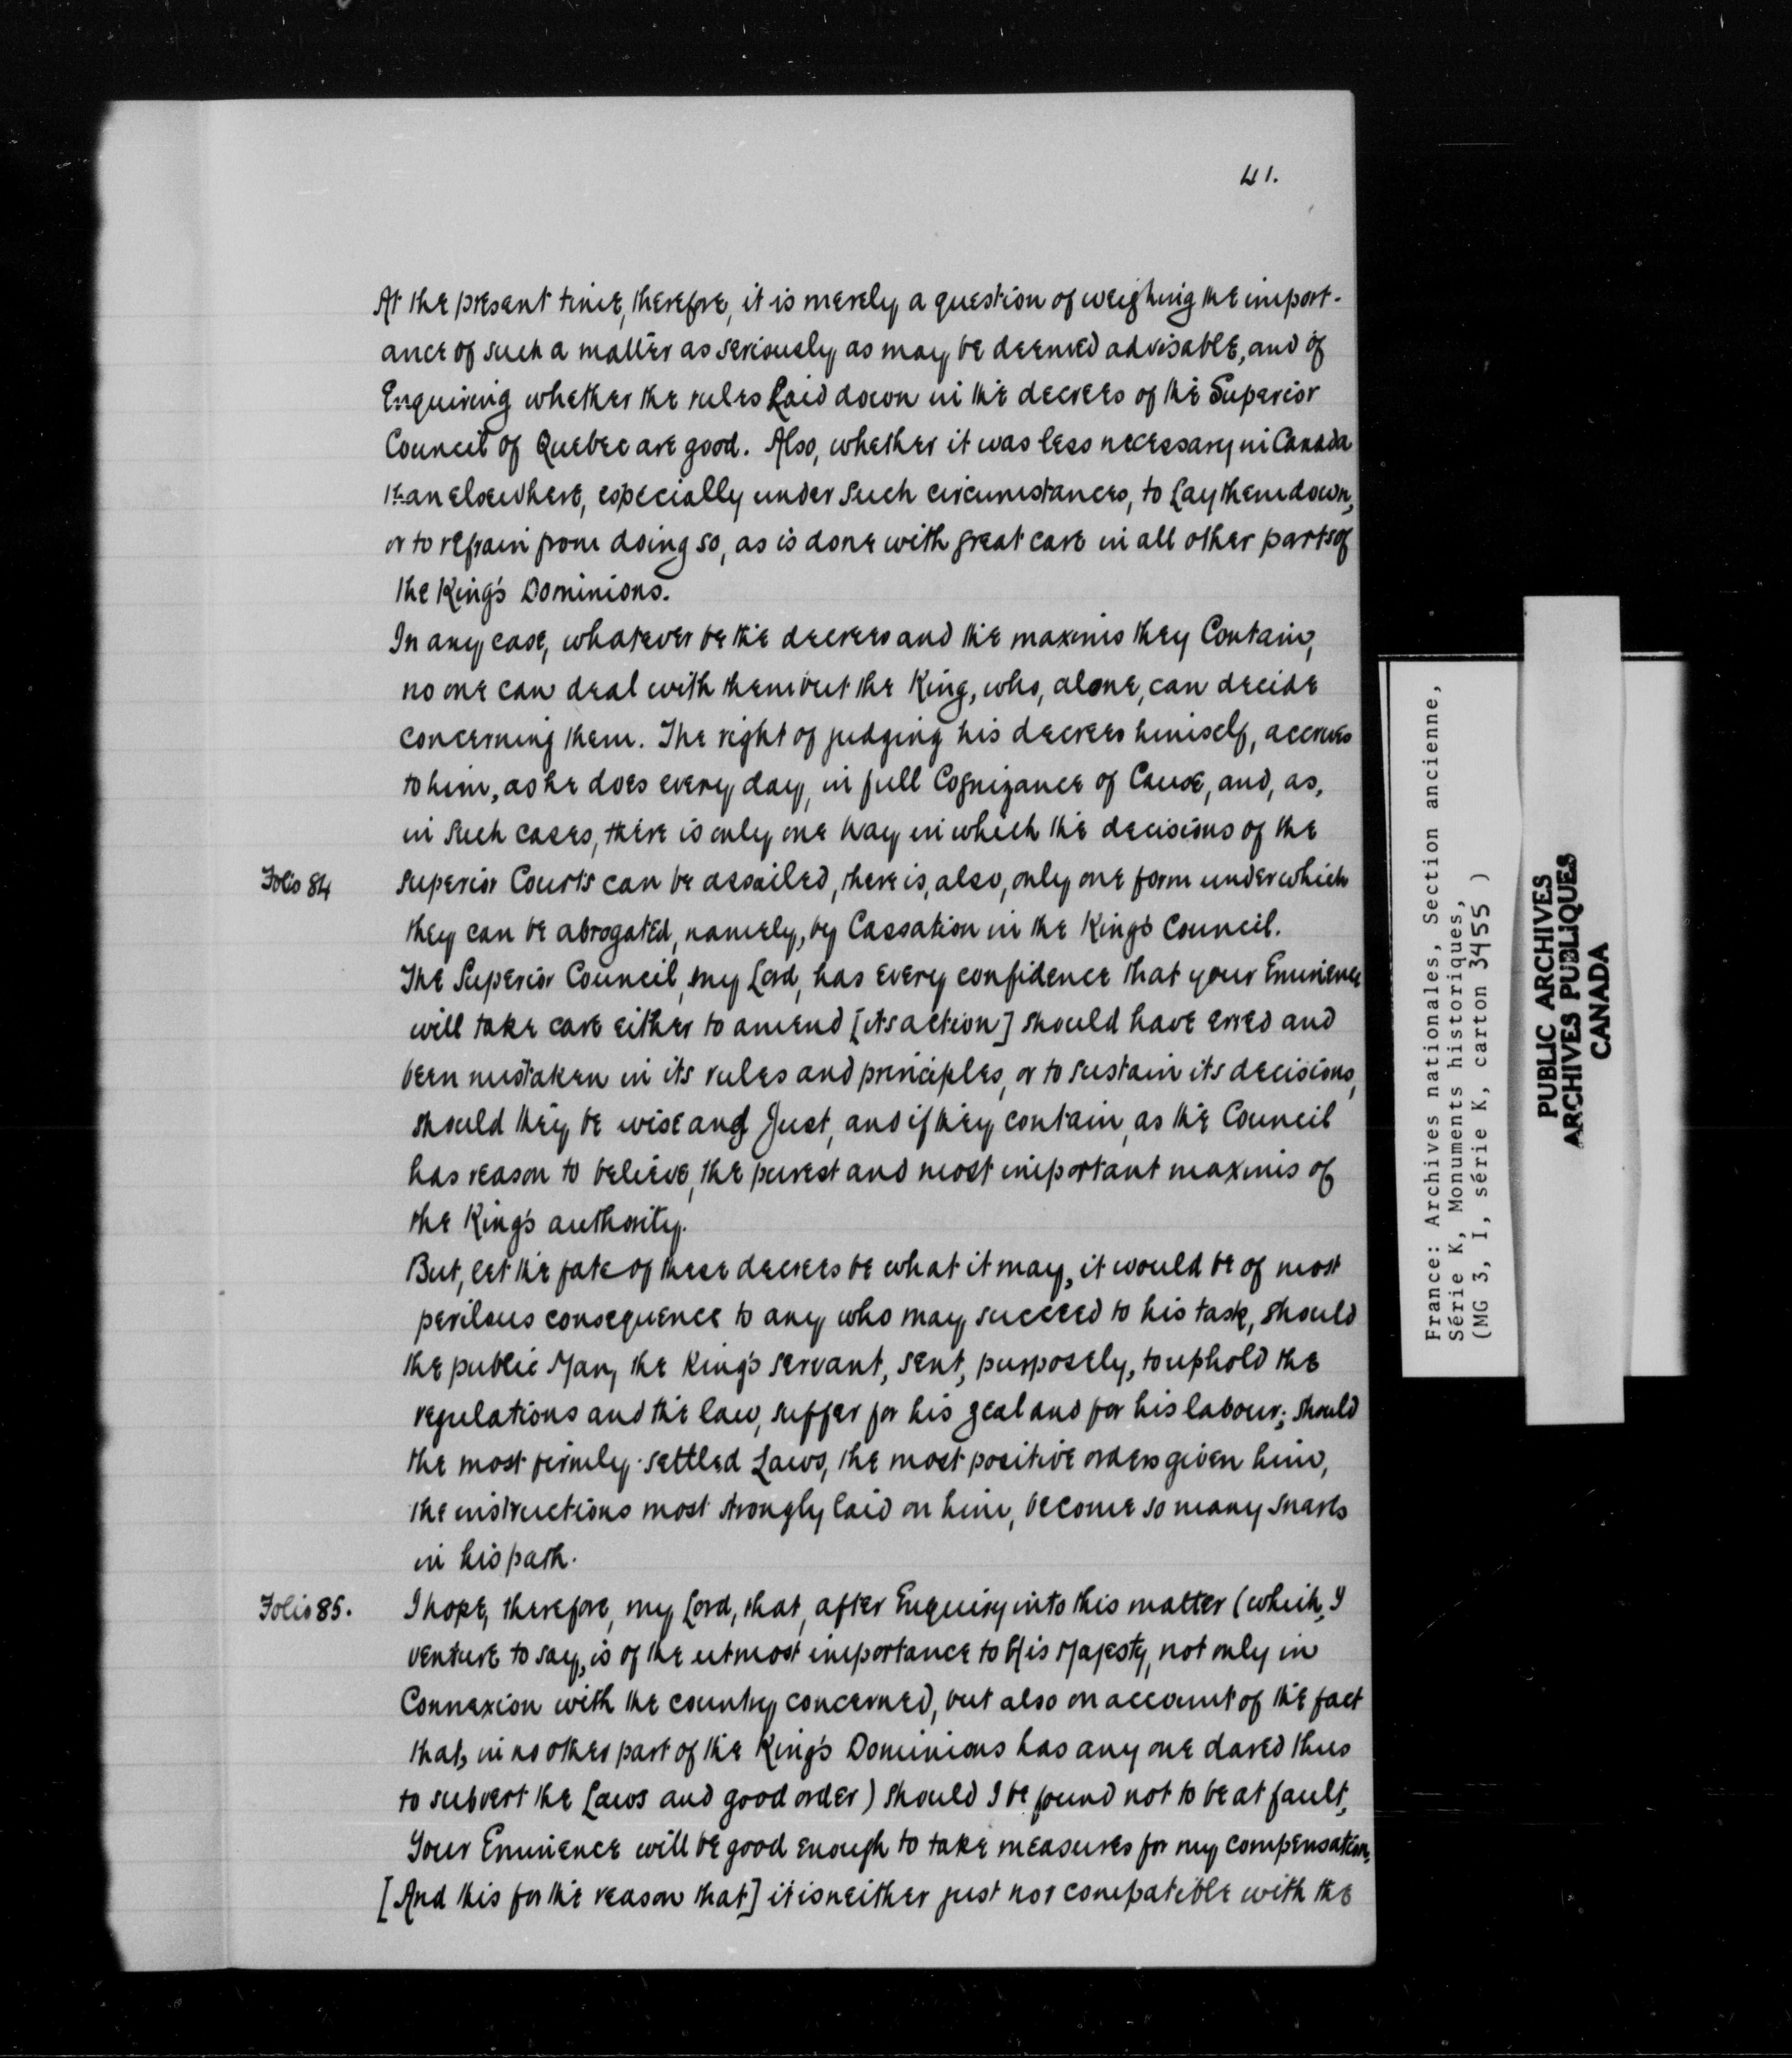 41.
At the present time, therefore, it is merely a question of weighing the import-
ance of such a matter as seriously as may be deemed advisable, and of
Enquiring whether the rules Laid down in the decrees of the Superior
Council of Quebec are good. Also, whether it was less necessary in Canada
than elsewhere, especially under such circumstances, to Lay them down,
or to refrain from doing so, as is done with great care in all other parts of
the King's Dominions.
In any case, whatever be the decrees and the maxims they Contain,
no one can deal with them but the King, who, alone, can decide
concerning them. The right of judging his decrees himself, accrues
to him, as he does every day, in full Cognizance of Cause, and, as,
in such cases, there is only one way in which the decisions of the
Folio 84 superior Courts can be assailed, there is, also, only one form under which
they can be abrogated, namely, by Cassation in the King's Council.
The Superior Council, my Lord, has every confidence that your Eminence
will take care either to amend [its action] should have erred and
been mistaken in its rules and principles, or to sustain its decisions,
should they be wise and Just, and if they contain, as the Council
has reason to believe, the purest and most important maxims of
the King's authority.
But, let the fate of these decrees be what it may, it would be of most
perilous consequence to any who may succeed to his task, should
the public Man, the King's servant, sent, purposely, to uphold the
regulations and the law, suffer for his zeal and for his labour; should
the most firmly-settled Laws, the most positive orders given him,
the instructions most strongly laid on him, become so many snares
in his path.
Folio 85. I hope, therefore, my Lord, that, after Enquiry into this matter (which, I
venture to say, is of the utmost importance to His Majesty, not only in
Connexion with the country concerned, but also on account of the fact
that, in no other part of the King's Dominions has any one dared thus
to subvert the Laws and good order) should I be found not to be at fault,
Your Eminence will be good enough to take measures for my compensation.
[And this for the reason that] it is neither just nor compatible with the
France: Archives nationales, Section ancienne,
Série K, Monuments historiques,
(MG 3, I, série K, carton 3455 )
PUBLIC ARCHIVES
ARCHIVES PUBLIQUES
CANADA